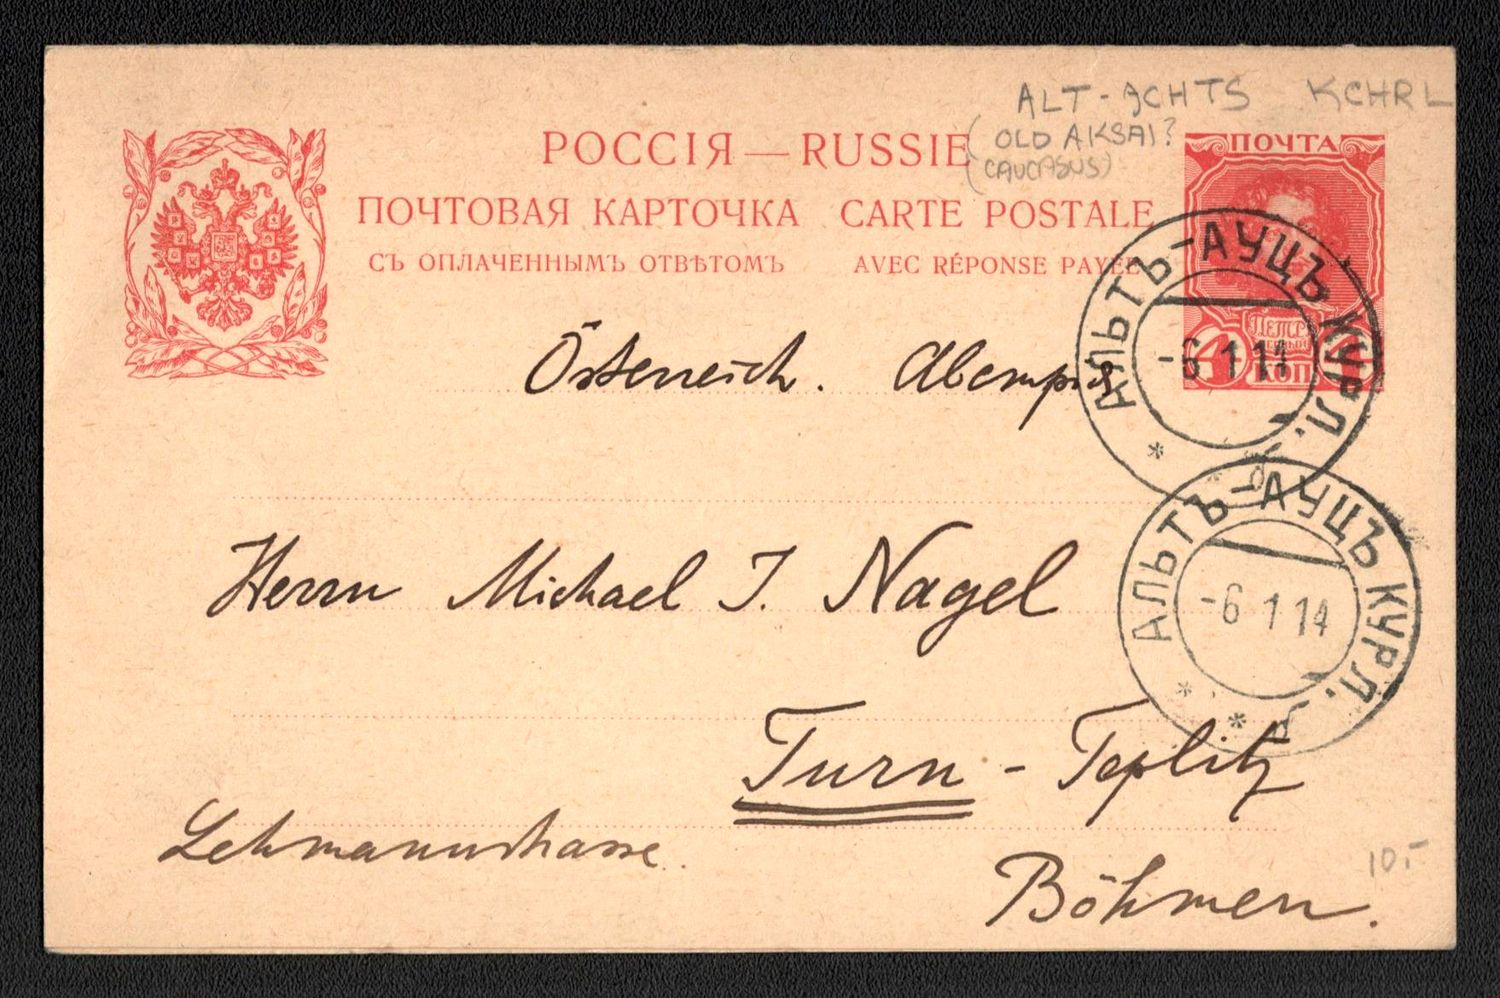 ALT-ACHTS KCHRL
(OLD AKSAI?
(CAUCASUS)
РОССІЯ — RUSSIE
ПОЧТОВАЯ КАРТОЧКА CARTE POSTALE
СЪ ОПЛАЧЕННЫМЪ ОТВѢТОМЪ AVEC RÉPONSE PAYÉE
ПОЧТА
ПЕТРЪ ПЕРВЫЙ
4 КОП 4
АЛЬТЪ-АУЦЪ КУРЛ.
-6 1 14
Österreich. Австрія
АЛЬТЪ-АУЦЪ КУРЛ.
-6 1 14
Herrn Michael J. Nagel
Turn - Teplitz
Lehmannstrasse.
Böhmen.
10.-